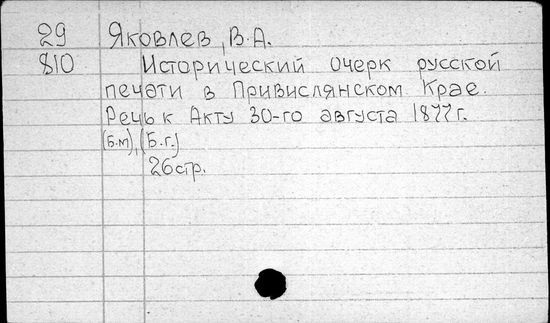 29 Яковлев, В.А.
810 Исторический очерк русской
печати в Привислянском Крае.
Речь к Акту 30-го августа 1877 г.
(Б.м), (Б.г.)
26стр.